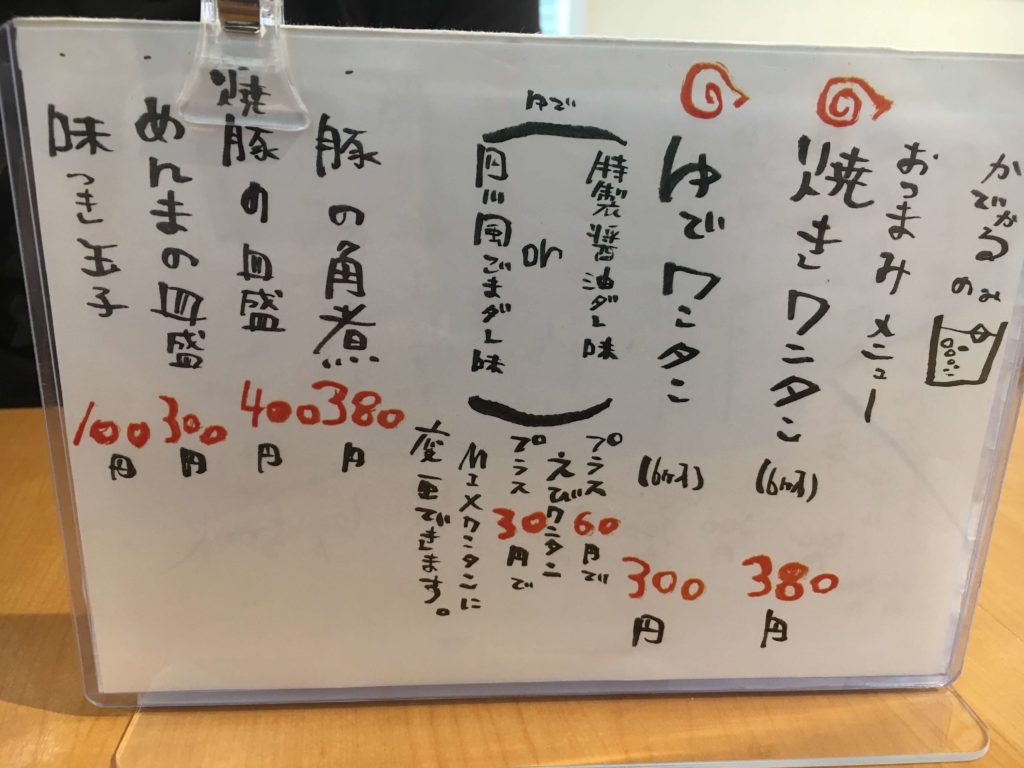 のみ
おつまみメニュー
焼きワンタン
380円
ゆでワンタン
300円
ゆで
特製醤油ダレ味
or
四川風ごまダレ味
プラス60円で
えびワンタン
プラス30円で
MIXワンタンに
変更できます。
豚の角煮
380円
焼豚の皿盛
400円
めんまの皿盛
300円
味つき玉子
100円